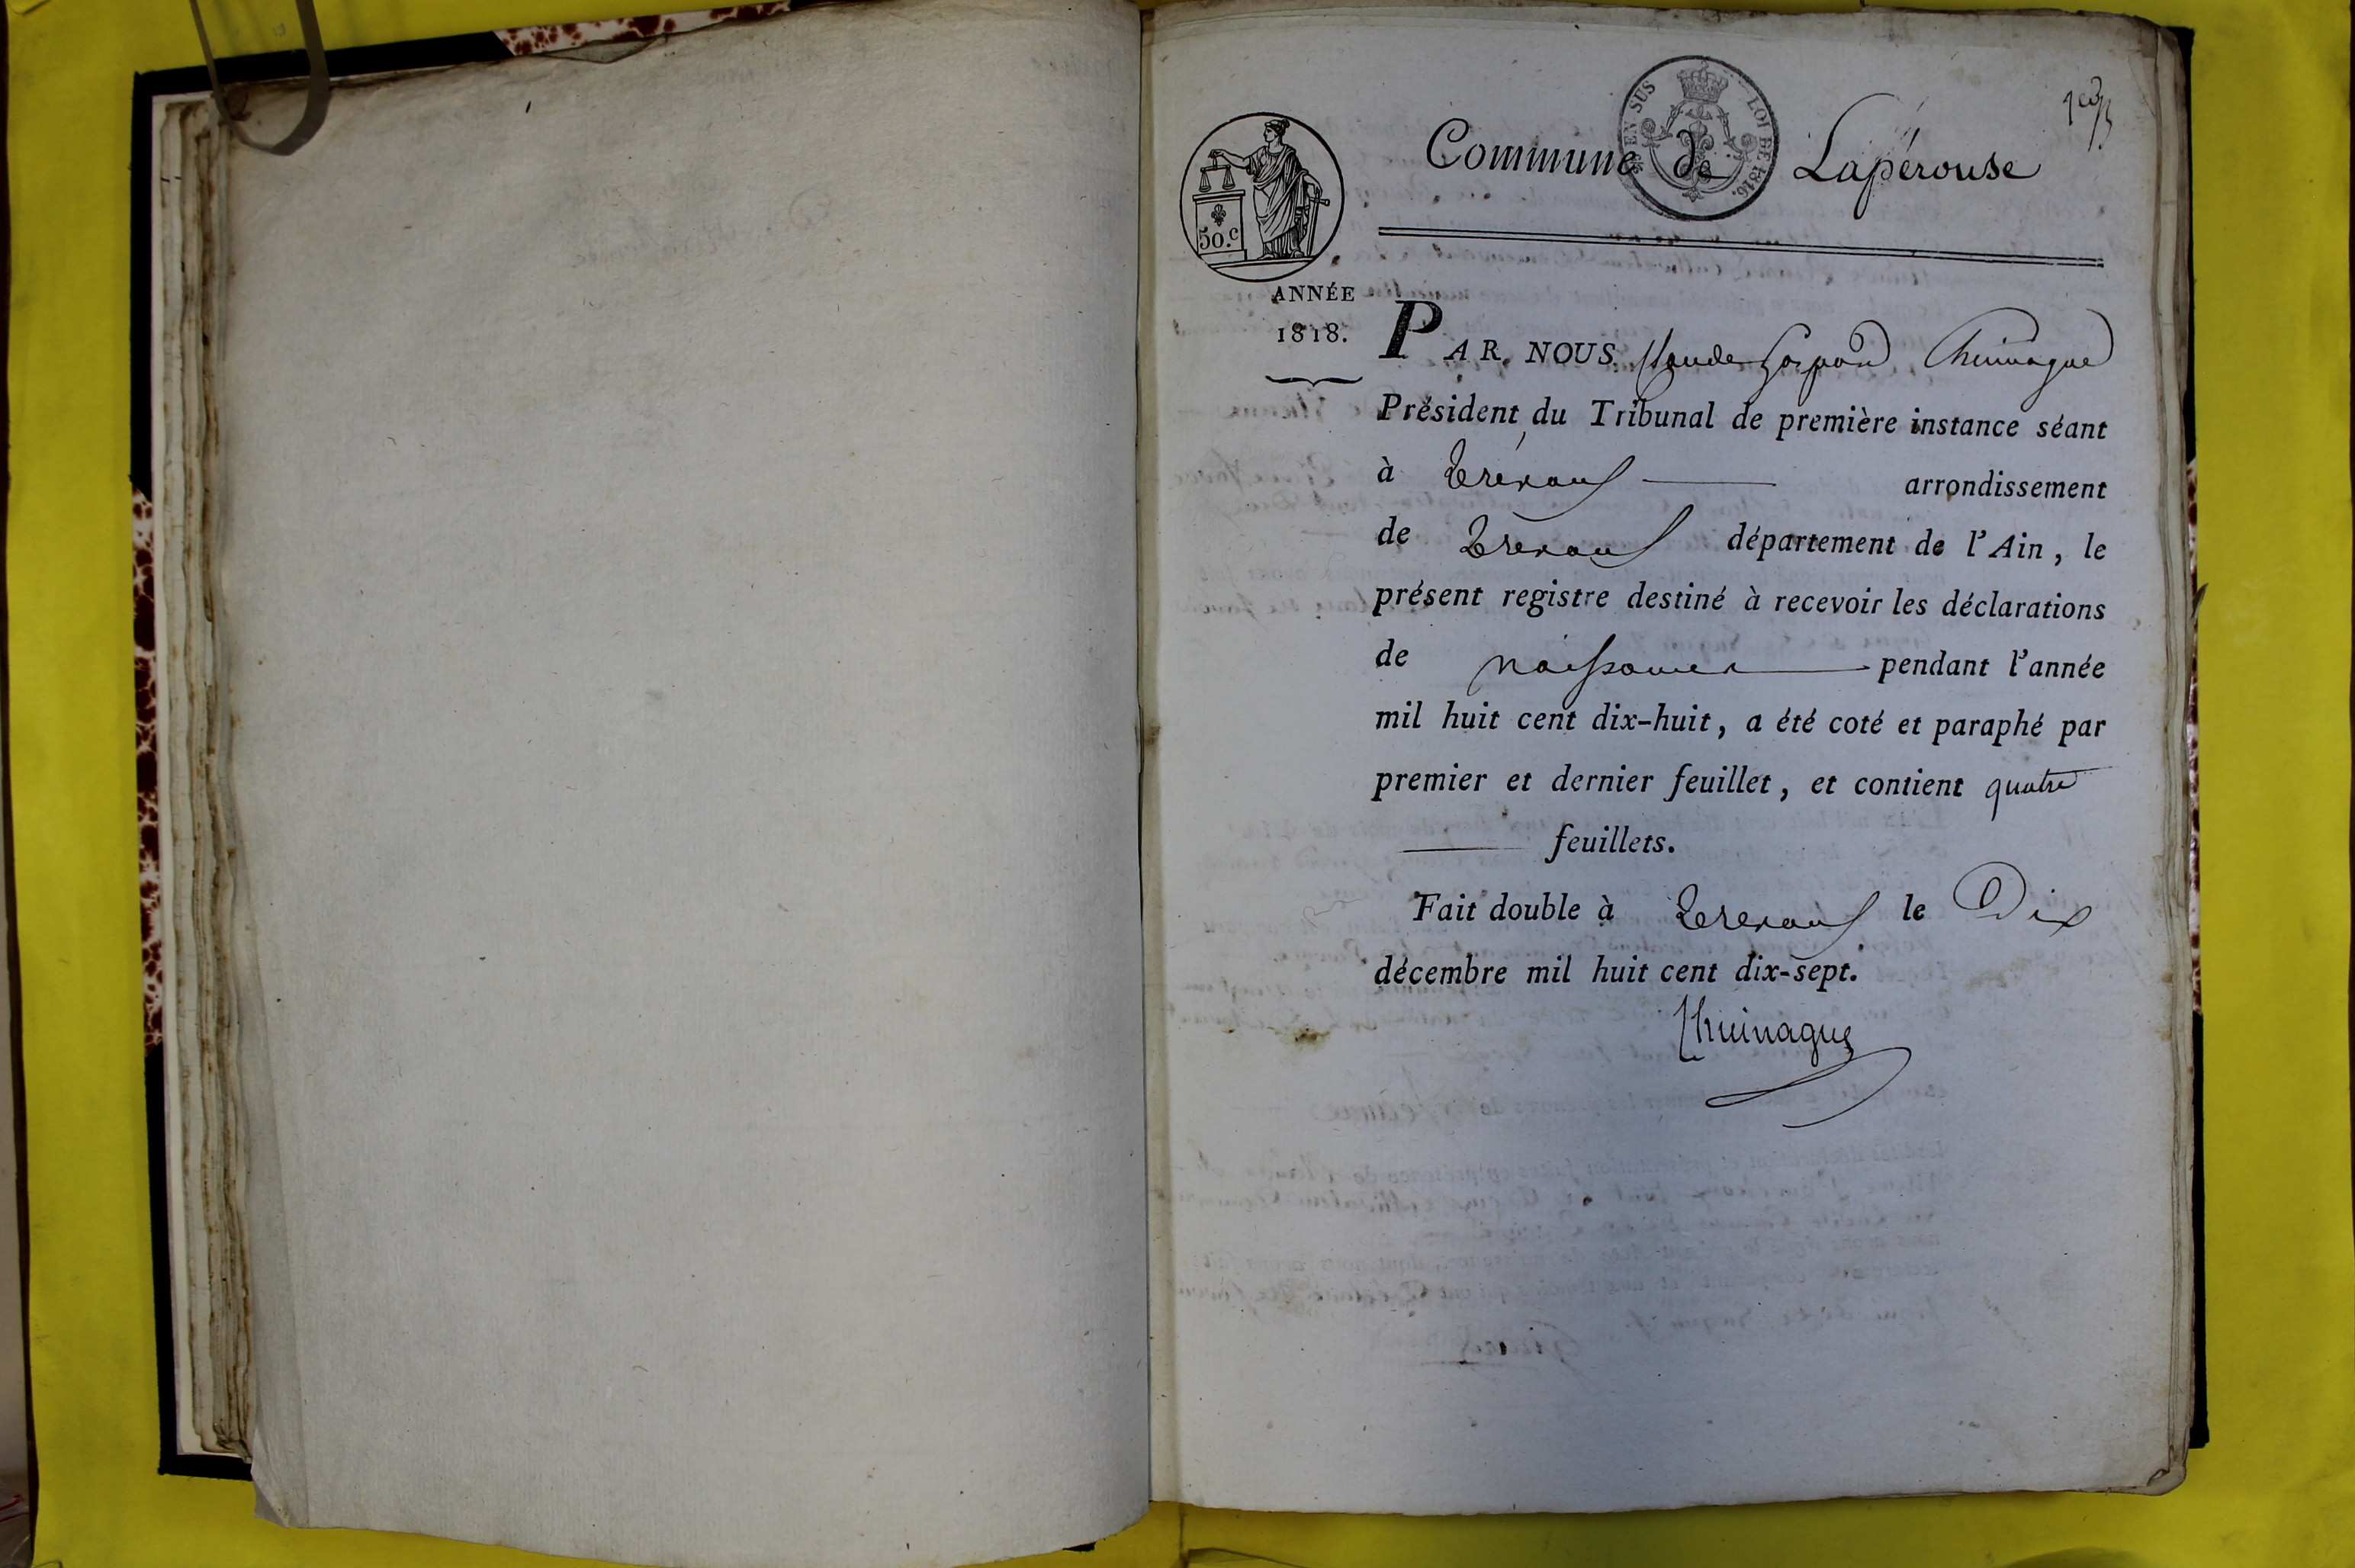 EN SUS LOI DE 1816.
Commune de Lapérouse
50.c
ANNÉE
1818.
PAR NOUS Claude Gaspard Chuinague
Président du Tribunal de première instance séant
à Trévoux arrondissement
de Trévoux département de l'Ain, le
présent registre destiné à recevoir les déclarations
de naissances pendant l'année
mil huit cent dix-huit, a été coté et paraphé par
premier et dernier feuillet, et contient quatre
feuillets.
Fait double à Trévoux le Dix
décembre mil huit cent dix-sept.
Chuinague